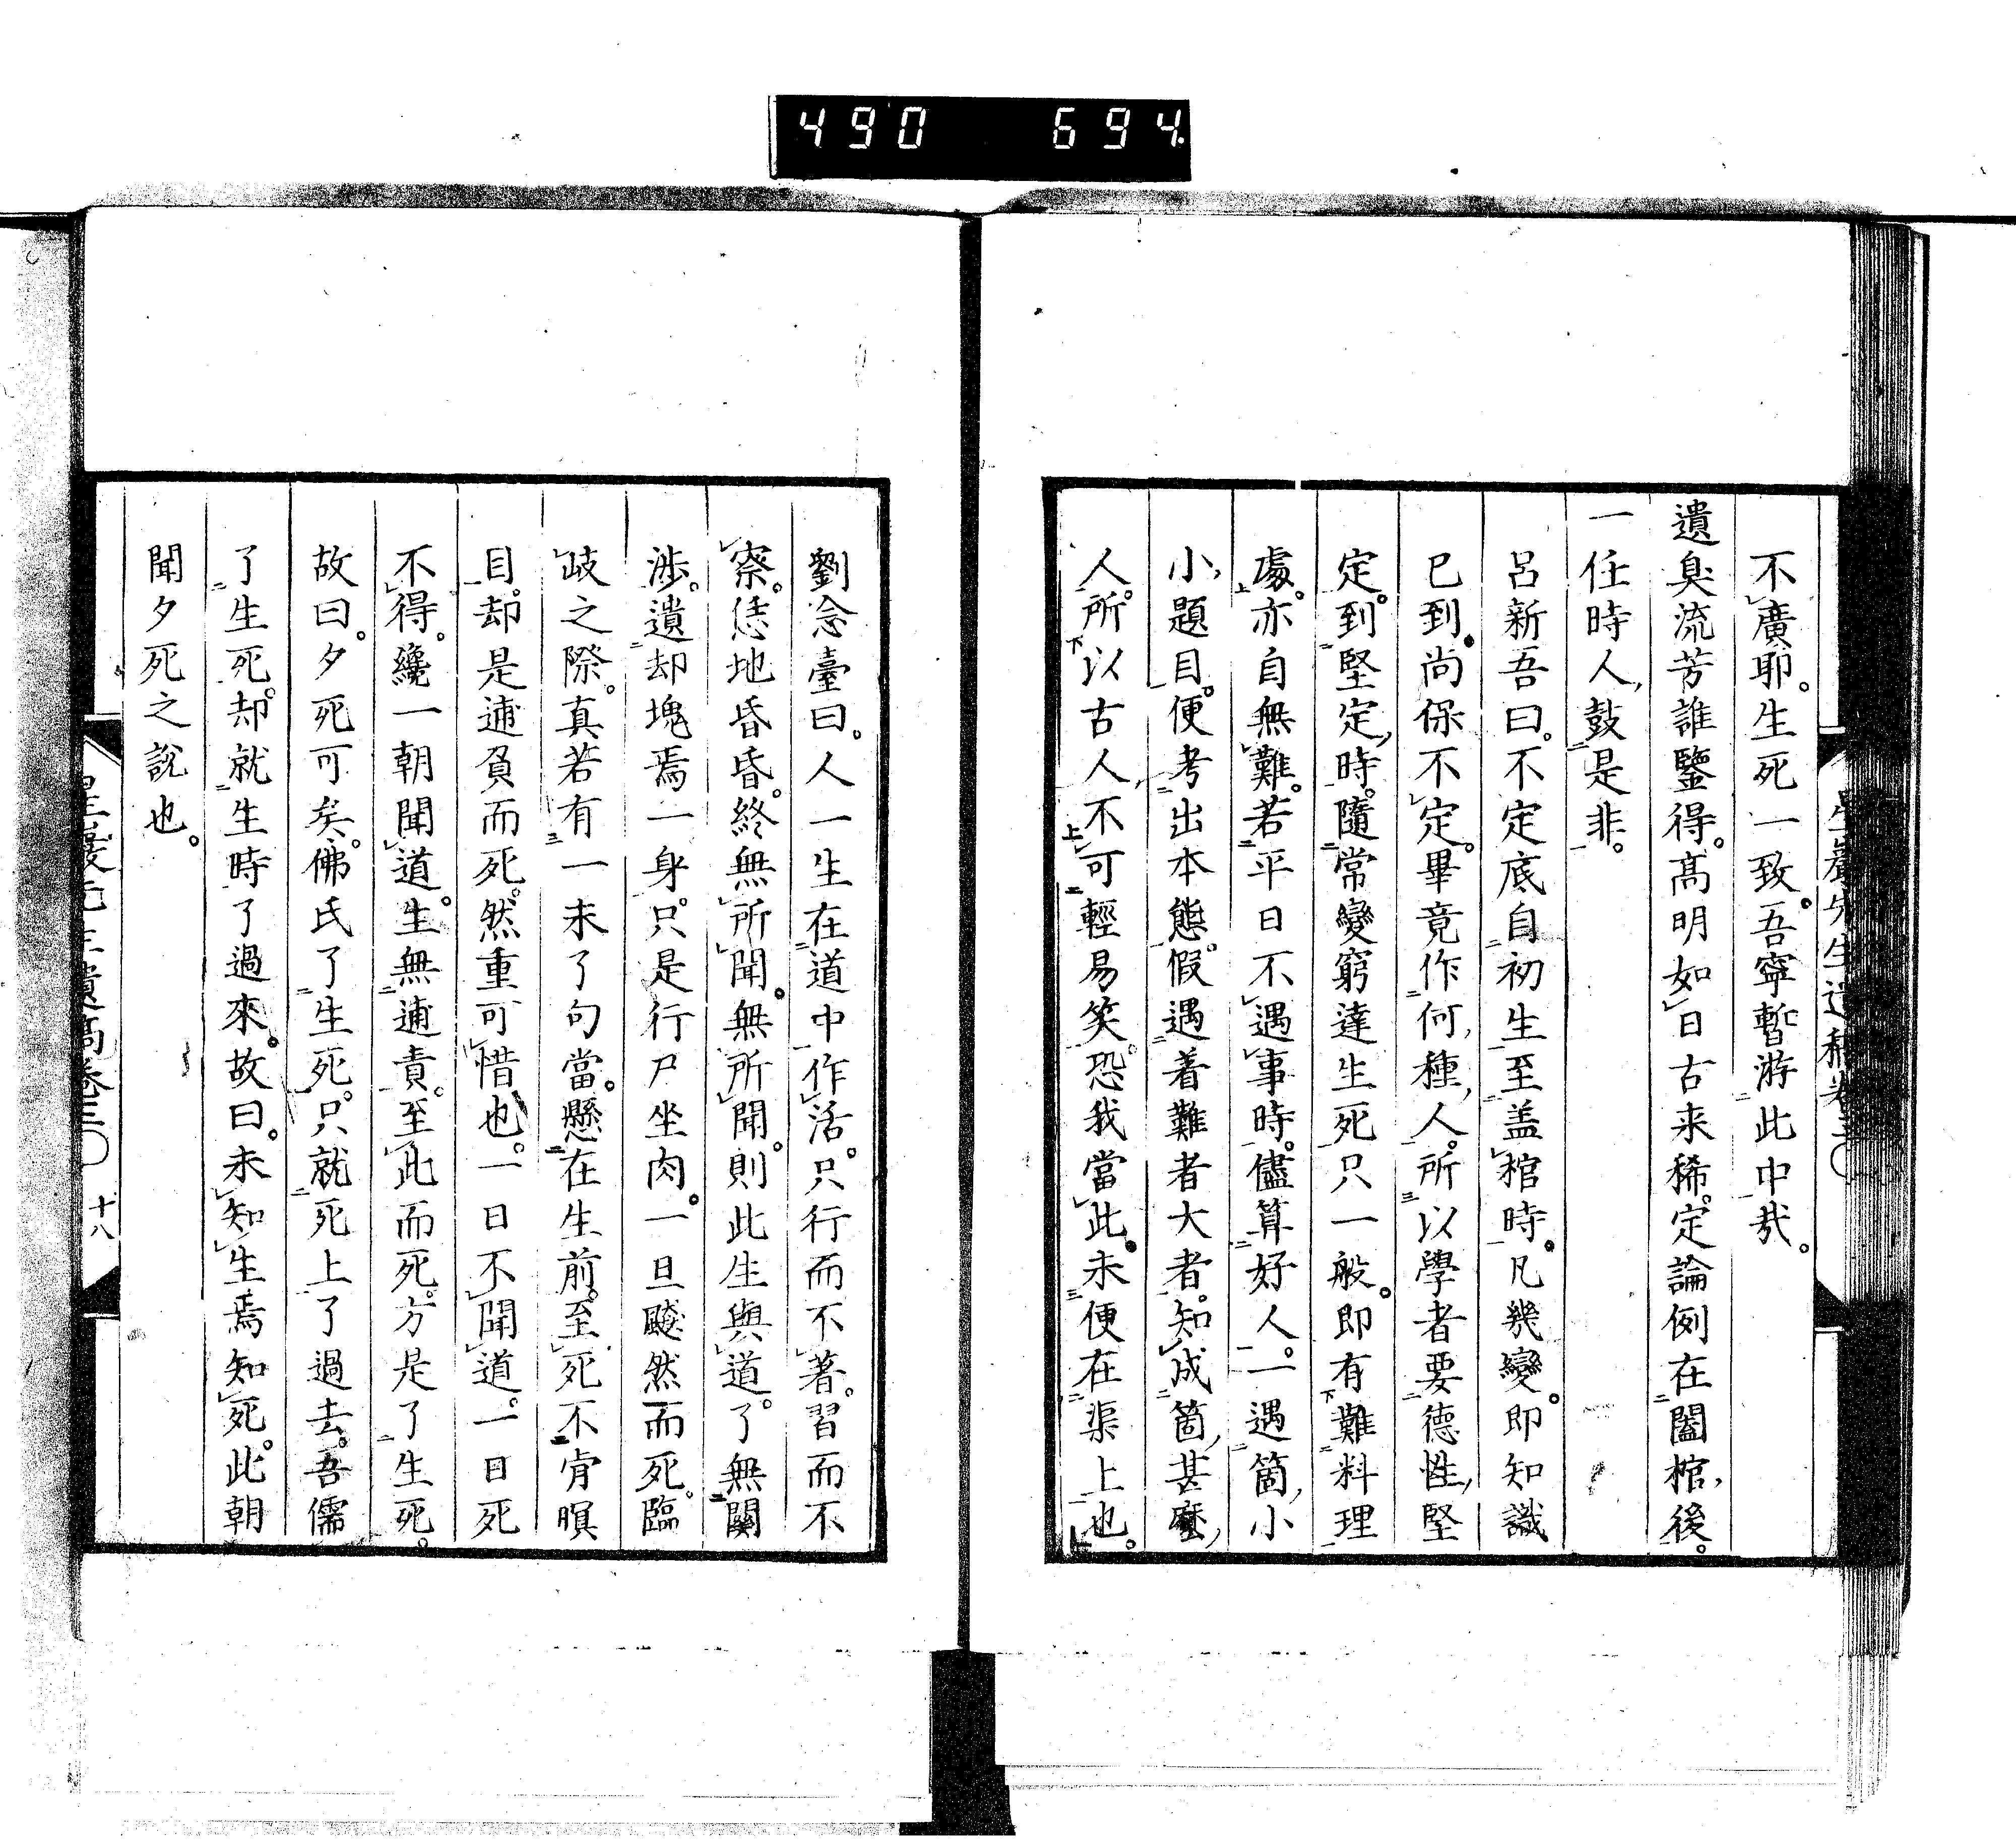 490 694
不廣耶。生死一致。吾寧暫游此中哉。
遺臭流芳誰鑒得。高明如日古来稀。定論例在闔棺後。
一任時人鼓是非。
呂新吾曰。不定底自初生至盖棺時。凡幾變。即知識
已到。尚保不定。畢竟作何種人。所以學者要德性堅
定。到堅定時。隨常變窮達生死只一般。即有難料理
處。亦自無難。若平日不遇事時。儘算好人。一遇箇小
小題目。便考出本態。假遇着難者大者。知成箇甚麼
人。所以古人不可輕易笑。恐我當此。未便在渠上也。
劉念臺曰。人一生在道中作活。只行而不著。習而不
察。恁地昏昏。終無所聞。無所聞。則此生與道。了無關
渉。遺却塊焉一身。只是行尸坐肉。一旦飈然而死。臨
岐之際。真若有一未了句當。懸在生前。至死不肯瞑
目。却是逋負而死。然重可惜也。一日不聞道。一日死
不得。纔一朝聞道。生無逋責。至此而死。方是了生死。
故曰。夕死可矣。佛氏了生死。只就死上了過去。吾儒
了生死。却就生時了過來。故曰。未知生焉知死。此朝
聞夕死之說也。
星巖先生遺稿卷三〇 十八